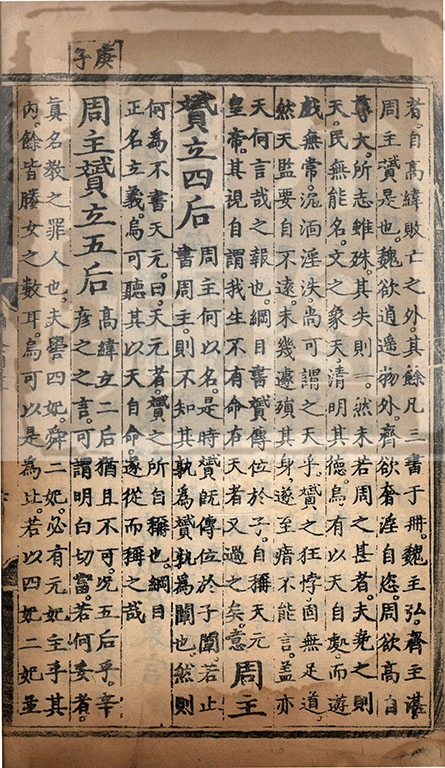 庚子
者。自高緯敗亡之外。其餘凡三書于冊。魏主弘。齊主湛。
周主贇是也。魏欲逍遙物外。齊欲奢淫自恣。周欲高自
尊大。所志雖殊。其失則一。然未若周之甚者。夫堯之則
天。民無能名。文之象天。清明其德。烏有以天自處。而遊
戲無常。沉湎淫泆。尚可謂之天乎。贇之狂悖。固無足道。
然天監要自不遠。未幾遽殞其身。遂至瘖不能言。蓋亦
天何言哉之報也。綱目書贇傳位於子。自稱天元
皇帝。其視自謂我生不有命在天者又過之矣。意
周主
贇立四后
周主何以名。是時贇既傳位於子闡。若止
書周主。則不知其孰為贇孰為闡也。然則
何為不書天元。曰。天元者。贇之所自稱也。綱目
正名立義。烏可聽其以天自命。遂從而稱之哉
周主贇立五后
高緯立二后猶且不可。況五后乎。辛
彥之之言。可謂明白切當。若何妥者。
真名教之罪人也。夫嚳四妃。舜二妃。必有元妃主乎其
內。餘皆媵女之數耳。烏可以是為比。若以四妃二妃並